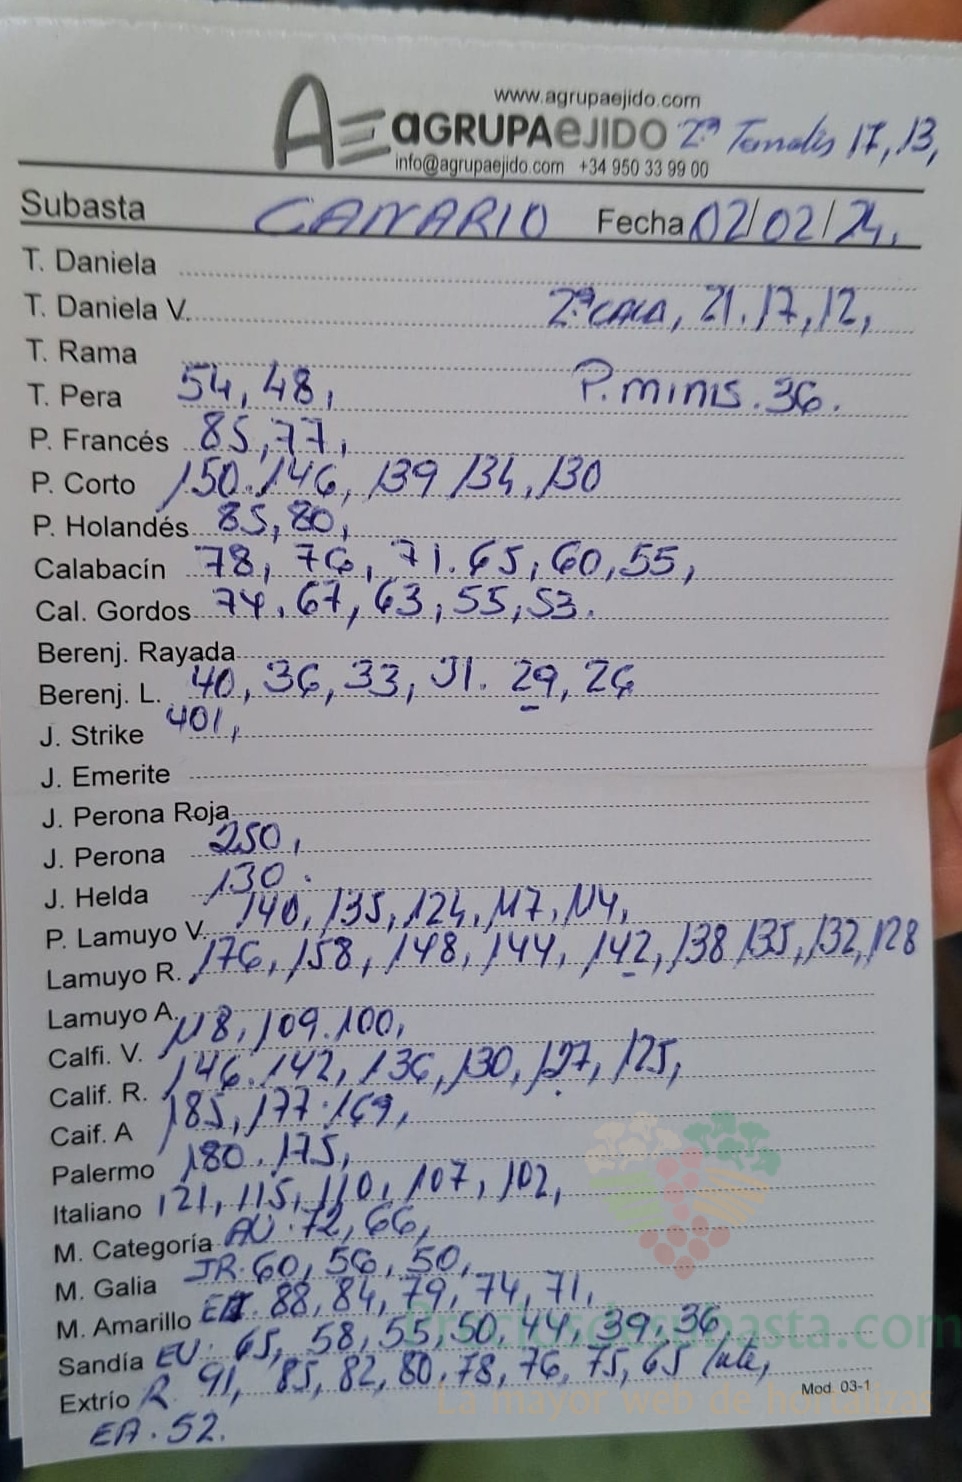 www.agrupaejido.com
AE aGRUPAeJIDO 2ª Tomates 17, 13,
info@agrupaejido.com +34 950 33 99 00
Subasta CANARIO Fecha 02/02/24,
T. Daniela
T. Daniela V. 2ª CALA, 21. 17, 12,
T. Rama
T. Pera 54, 48, P. minis. 36.
P. Francés 85, 77,
P. Corto 150. 146, 139 134, 130
P. Holandés 85, 80,
Calabacín 78, 76, 71. 65, 60, 55,
Cal. Gordos 74. 67, 63, 55, 53.
Berenj. Rayada
Berenj. L. 40, 36, 33, 31. 29, 26
J. Strike 401,
J. Emerite
J. Perona Roja
J. Perona 250,
J. Helda 130.
P. Lamuyo V. 140, 135, 124, 117, 114,
Lamuyo R. 176, 158, 148, 144, 142, 138 135, 132, 128
Lamuyo A.
Calfi. V. 118, 109. 100,
Calif. R. 146. 142, 136, 130, 127, 125,
Caif. A 185, 177. 169,
Palermo 180. 175,
Italiano 121, 115, 110, 107, 102,
M. Categoría AU. 72, 66,
M. Galia JR. 60, 56, 50,
M. Amarillo 88, 84, 79, 74, 71,
Sandía EU. 65, 58, 55, 50, 44, 39, 36,
Extrío R 91, 85, 82, 80. 78, 76, 75, 65
EA. 52.
Mod. 03-1
Preciosdesubasta.com
La mayor web de hortalizas